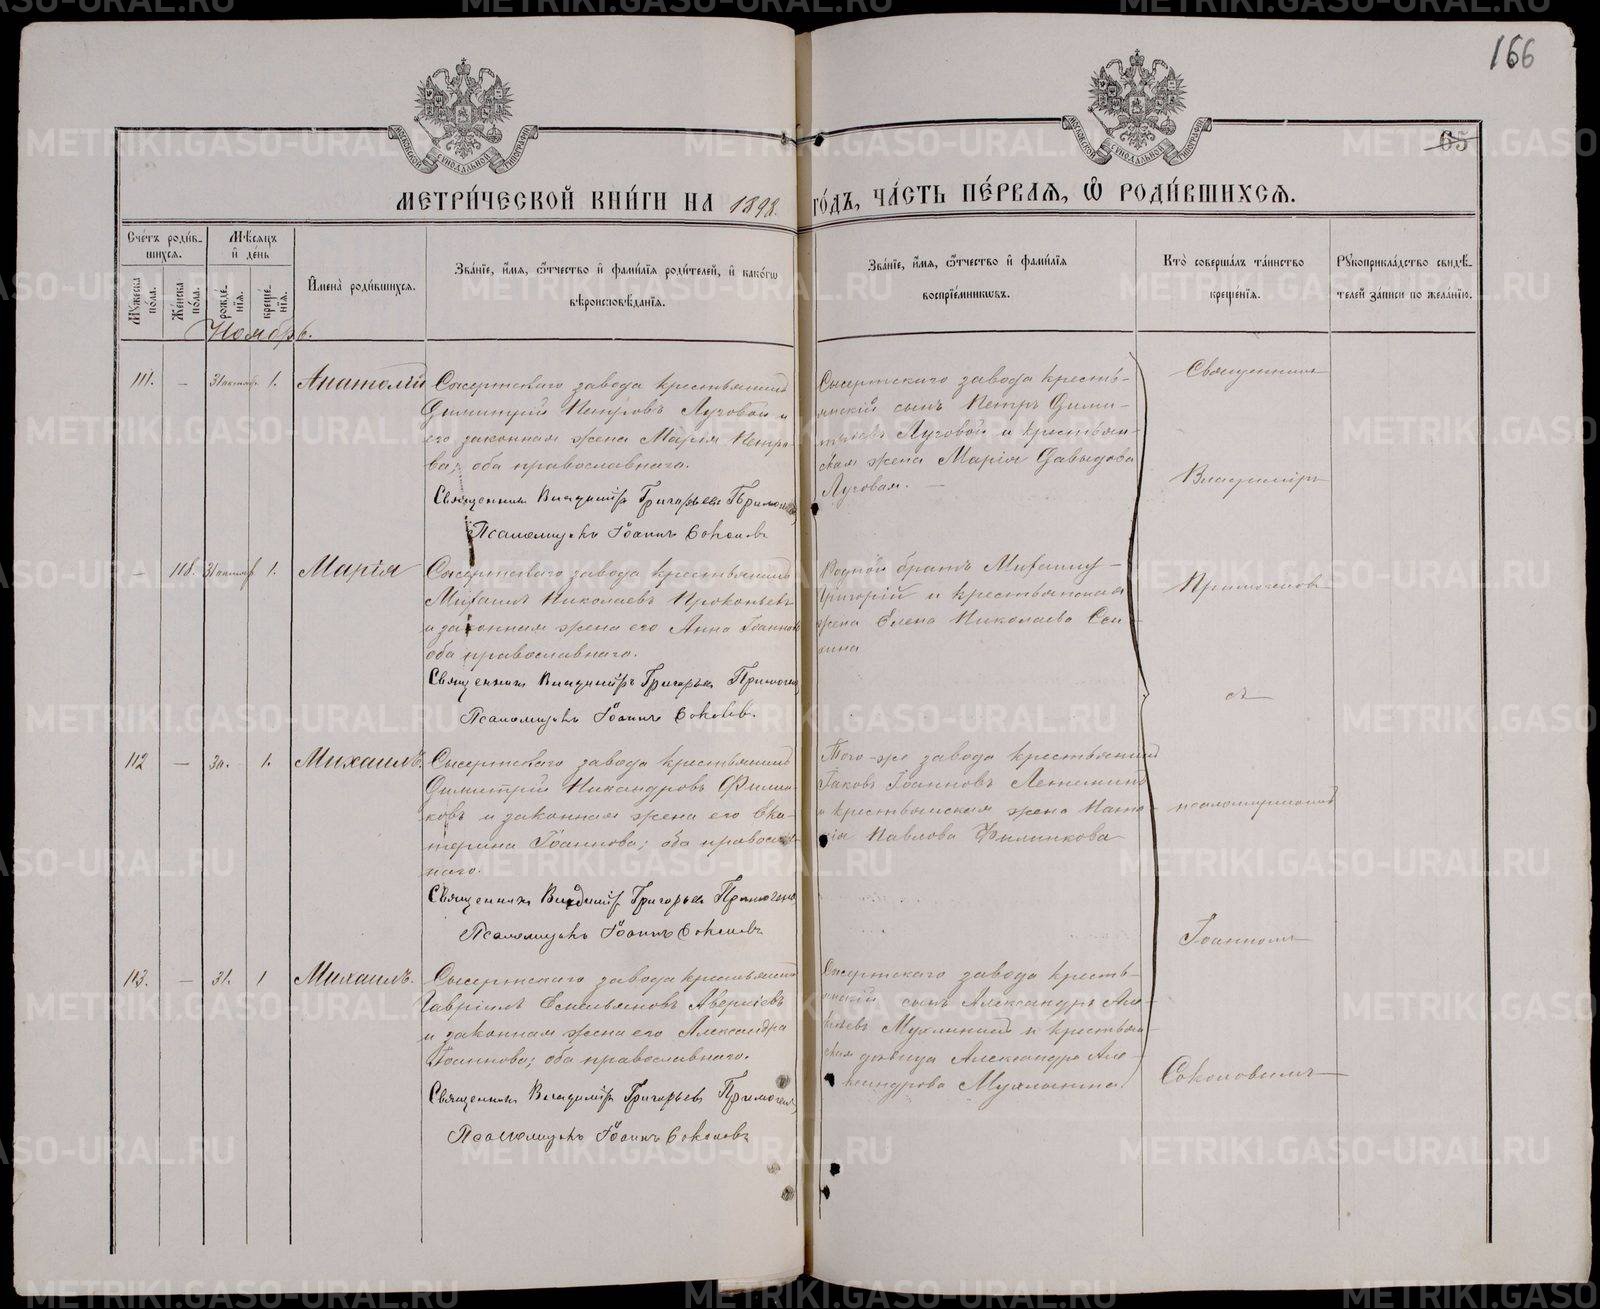 166
65
МОСКОВСКОЙ СѴНОДАЛЬНОЙ ТИПОГРАФІИ
МОСКОВСКОЙ СѴНОДАЛЬНОЙ ТИПОГРАФІИ
МЕТРИ́ЧЕСКОЙ КНИ́ГИ НА 1898. ГО́ДЪ, ЧА́СТЬ ПЕ́РВАЯ, Ѡ҆ РОДИ́ВШИХСЯ.
Сче́тъ роди́в-
шихся.
Мѣ́сяцъ
и҆ де́нь
Мꙋ́жеска по́ла.
Же́нска по́ла.
рожде́-
нїя.
креще́-
нїя.
И҆мена̀ роди́вшихся.
Зва́нїе, и҆́мя, ѻ҆́тчество и҆ фами́лїя роди́телей, и҆ како́гѡ
вѣроисповѣ́данїя.
Зва́нїе, и҆́мя, ѻ҆́тчество и҆ фами́лїя
воспрїе́мникѡвъ.
Кто̀ соверша́лъ та́инство
креще́нїя.
Рꙋкоприкла́дство свидѣ́-
телей за́писи по жела́нїю.
Ноябрь.
111. – 31 октяб. 1. Анатолій
Сысертскаго завода крестьянинъ
Димитрій Петровъ Луговой и
его законная жена Марія Петро-
ва; оба православнаго.
Священникъ Владиміръ Григорьевъ
Псаломщикъ Іоаннъ Соколовъ
Сысертскаго завода кресть-
янскій сынъ Петръ Дими-
тріевъ Луговой и крестьян-
ская жена Марія Давыдова
Луговая. –
Священникъ
Владиміръ
– 118. 31 октяб 1. Марія
Сысертскаго завода крестьянинъ
Михаилъ Николаевъ Прокопьевъ
и законная жена его Анна Іоаннова
оба православнаго.
Священникъ Владиміръ Григорьевъ
Псаломщикъ Іоаннъ Соколовъ.
Родной братъ Михаилу
Григорій и крестьянская
жена Елена Николаева
Примогеновъ
съ
112 – 30. 1. Михаилъ.
Сысертскаго завода крестьянинъ
Димитрій Никандровъ Филип-
ковъ и законная жена его Ека-
терина Іоаннова; оба православ-
наго.
Священникъ Владиміръ Григорьевъ
Псаломщикъ Іоаннъ Соколовъ
Того-же завода крестьянинъ
Іаковъ Іоанновъ Летеминъ
и крестьянская жена Ната-
лія Павлова Филипкова
псаломщикомъ
Іоанномъ
113. – 31. 1 Михаилъ.
Сысертскаго завода крестьянинъ
Гавріилъ Емельяновъ Аверкіевъ
и законная жена его Александра
Іоаннова; оба православнаго.
Священникъ Владиміръ Григорьевъ
Псаломщикъ Іоаннъ Соколовъ
Сысертскаго завода кресть-
янскій сынъ Александръ Але-
ксѣевъ и крестьян-
ская дѣвица Александра Але-
ксандрова
Соколовымъ
METRIKI.GASO-URAL.RU